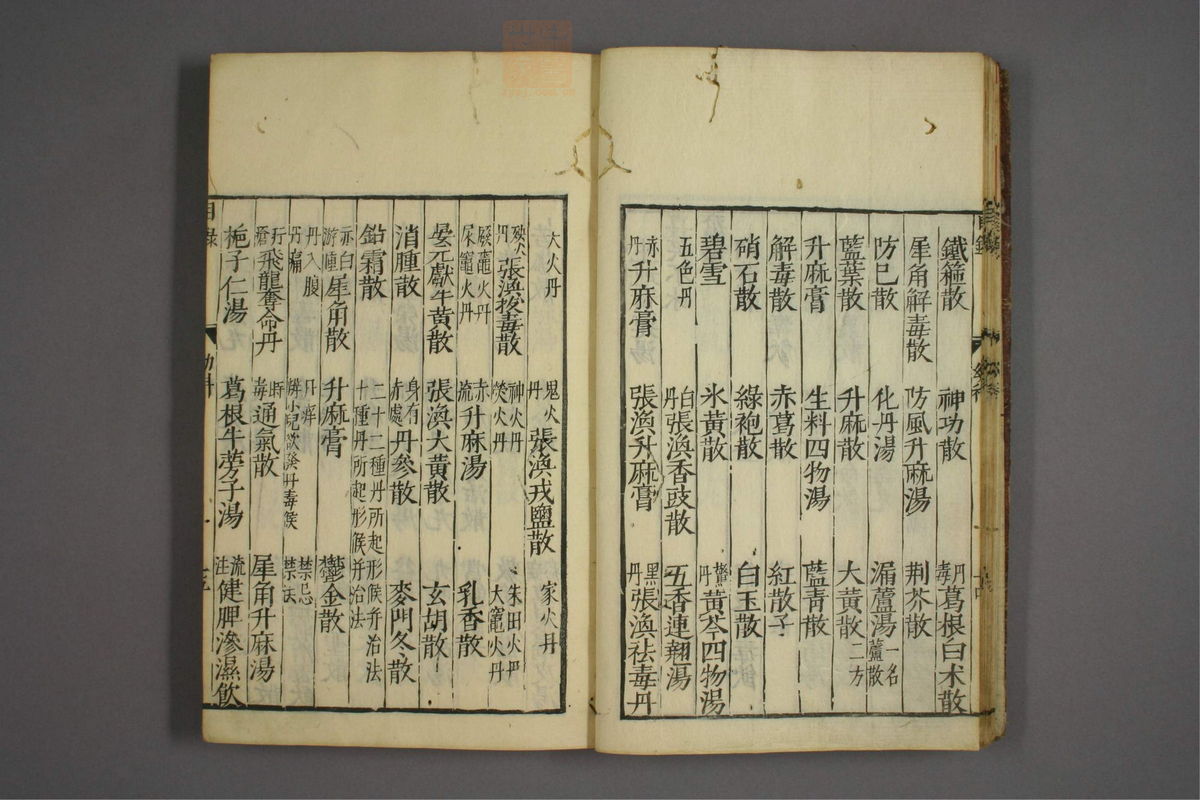 鐵箍散 神功散 丹毒葛根白朮散
犀角解毒散 防風升麻湯 荆芥散
防已散 化丹湯 漏蘆湯一名蘆散
藍葉散 升麻散 大黄散二方
升麻膏 生料四物湯 藍青散
解毒散 赤葛散 紅散子
硝石散 綠袍散 白玉散
碧雪 氷黄散 丹黄芩四物湯
五色丹 白丹張渙香豉散 五香連翹湯
赤丹升麻膏 張渙升麻膏 黑丹張渙祛毒丹
大火丹 鬼火丹張渙戎鹽散 家火丹
丹張渙拔毒散 神火丹 朱田火丹
廢竈火丹 熒火丹 大竈火丹
尿竈火丹 赤流升麻湯 乳香散
晏元獻牛黄散 張渙大黄散 玄胡散
消腫散 身有赤處丹參散 麥門冬散
鉛霜散 二十二種丹所起形候并治法
十種丹所起形候并治法
赤白游腫犀角散 升麻膏 鬱金散
丹入腹 丹瘡 禁忌
辨小兒欲發丹毒候 禁法
飛龍奪命丹 時毒通氣散 犀角升麻湯
梔子仁湯 葛根牛蒡子湯 流注健脾滲濕飲
目錄 幼科